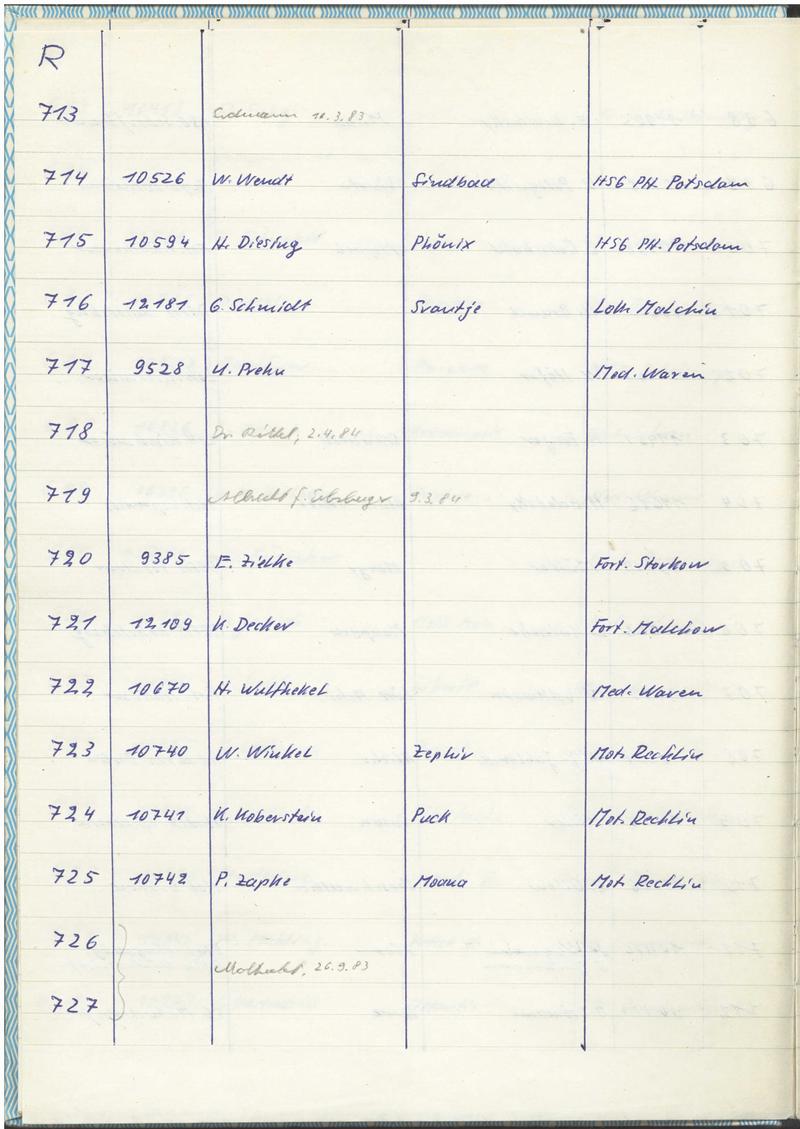 R
713 Erdmann 10.3.83
714 10526 W. Wendt Sindbad HSG PH. Potsdam
715 10594 H. Diesing Phönix HSG PH. Potsdam
716 12181 G. Schmidt Svantje Lok Malchin
717 9528 U. Prehn Med. Waren
718 Dr. 2.4.84
719 Albrecht f. 9.3.84
720 9385 E. Zielke Fort. Storkow
721 12109 K. Decker Fort. Malchow
722 10670 H. Wulfhekel Med. Waren
723 10740 W. Winkel Zephir Mot. Rechlin
724 10741 K. Koberstein Puck Mot. Rechlin
725 10742 P. Zapke Moana Mot. Rechlin
726
26.9.83
727